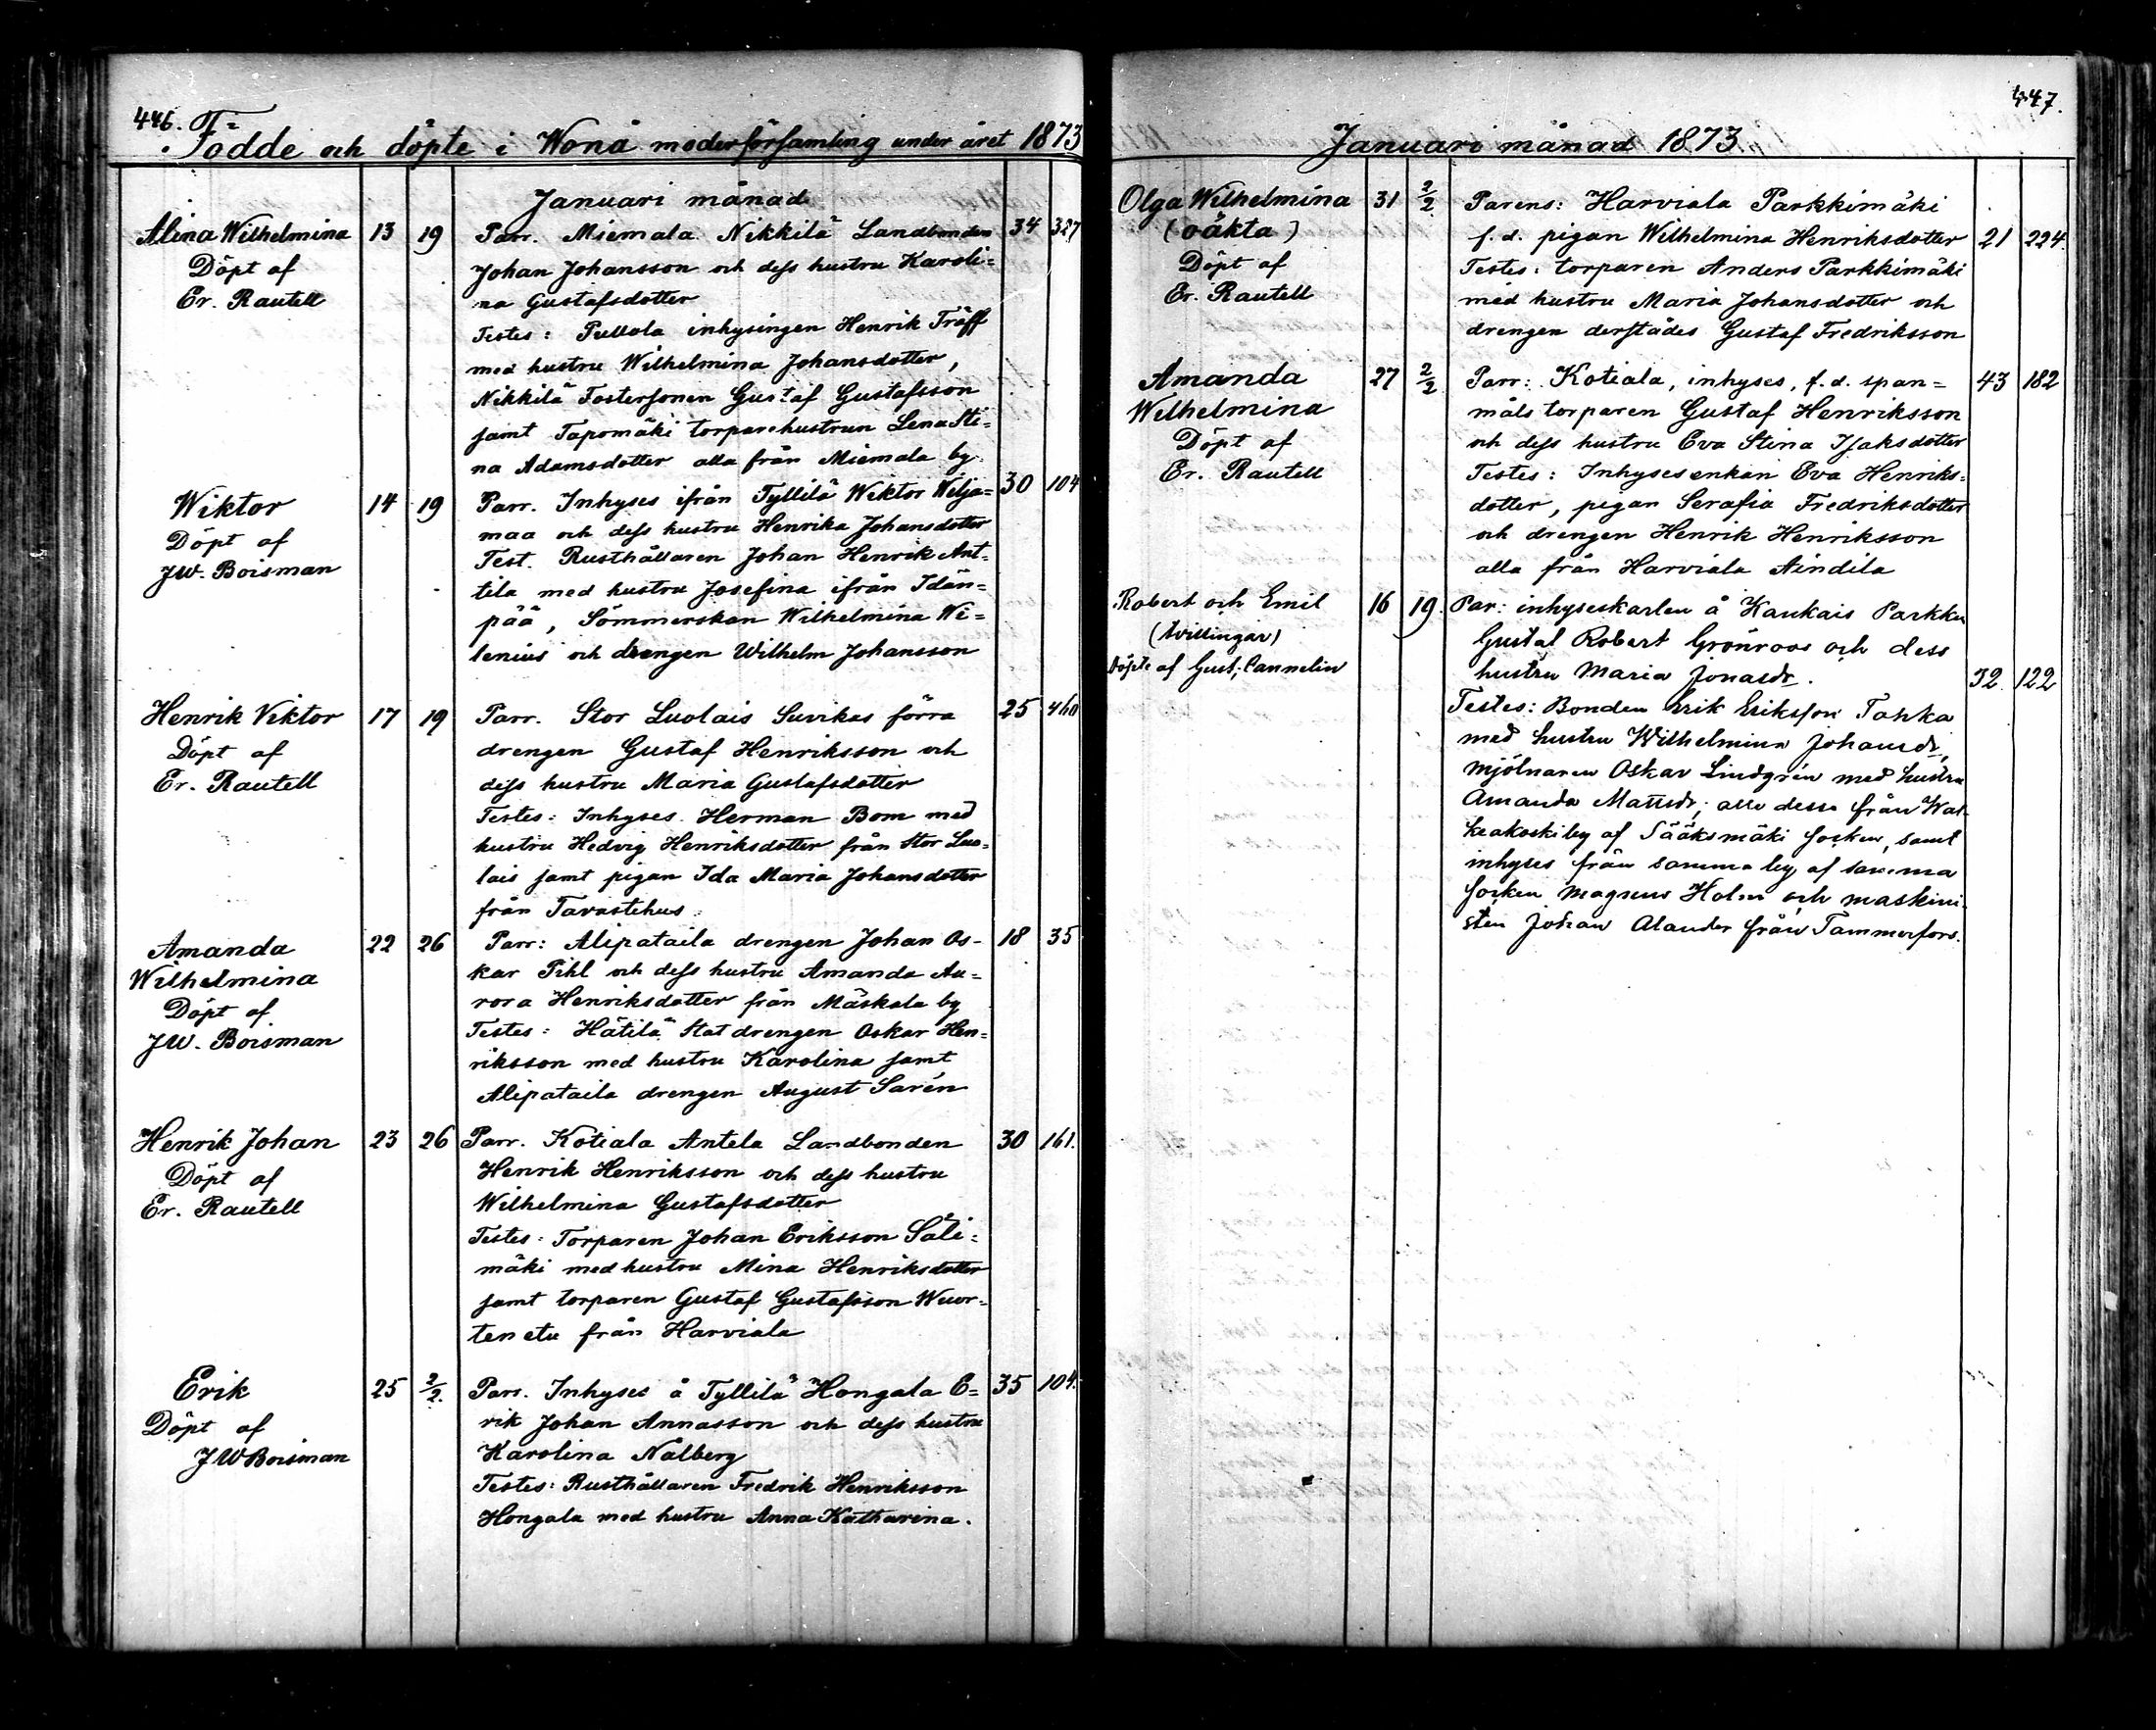 446.
Födde och döpte i Wonå moderförsamling under året 1873
Januari månad
Alina Wilhelmina 13 19 Parr. Miemala Nikkilä Landbonden 34 327
Döpt af Johan Johansson och dess hustru Karoli=
Er. Rautell na Gustafsdotter
Testes: Pullola inhysingen Henrik Träff
med hustru Wilhelmina Johansdotter,
Nikkilä Fostersonen Gustaf Gustafsson
samt Tapomäki torparehustrun Lena Sti=
na Adamsdotter alla från Miemala by.
Wiktor 14 19 Parr. Inhyses ifrån Tyllilä Wiktor Welja= 30 104
Döpt af maa och dess hustru Henrika Johansdotter
JW. Boisman Test. Rusthållaren Johan Henrik Ant=
tila med hustru Josefina ifrån Idän=
pää, Sömmerskan Wilhelmina Wi=
lenius och drengen Wilhelm Johansson
Henrik Viktor 17 19 Parr. Stor Luolais Suvikas förra 25 460
Döpt af drengen Gustaf Henriksson och
Er. Rautell dess hustru Maria Gustafsdotter
Testes: Inhyses Herman Bom med
hustru Hedvig Henriksdotter från Stor Luo=
lais samt pigan Ida Maria Johansdotter
från Tavastehus
Amanda 22 26 Parr: Alipataila drengen Johan Os- 18 35
Wilhelmina kar Pihl och dess hustru Amanda Au=
Döpt af rora Henriksdotter från Mäskala by
JW. Boisman Testes: Hätilä Statdrengen Oskar Hen=
riksson med hustru Karolina samt
Alipataila drengen August Sarén
Henrik Johan 23 26 Parr. Kotiala Antela Landbonden 30 161.
Döpt af Henrik Henriksson och dess hustru
Er. Rautell Wilhelmina Gustafsdotter
Testes: Torparen Johan Eriksson Säli=
mäki med hustru Mina Henriksdotter
samt torparen Gustaf Gustafsson Wuor=
ten etu från Harviala
Erik 25 2/2. Parr. Inhyses å Tyllilä Hongala E= 35 104.
Döpt af rik Johan Annasson och dess hustru
JW Boisman Karolina Nålberg
Testes: Rusthållaren Fredrik Henriksson
Hongala med hustru Anna Katharina.
447.
Januari månad 1873
Olga Wilhelmina 31 2/2. Parens: Harviala Parkkimäki
(oäkta) f. d. pigan Wilhelmina Henriksdotter 21 224.
Döpt af Testes: torparen Anders Parkkimäki
Er. Rautell med hustru Maria Johansdotter och
drengen derstädes Gustaf Fredriksson
Amanda 27 2/2. Parr: Kotiala, inhyses, f. d. span= 43 182
Wilhelmina måls torparen Gustaf Henriksson
Döpt af och dess hustru Eva Stina Isaksdotter
Er. Rautell Testes: Inhysesenkan Eva Henriks=
dotter, pigan Serafia Fredriksdotter
och drengen Henrik Henriksson
alla från Harviala Äindilä
Robert och Emil 16 19. Par: inhyseskarlen å Kankais Parkku
(tvillingar) Gustaf Robert Grönroos och dess
Döpte af Gust. Cannelin hustru Maria Jonasdr. 32. 122
Testes: Bonden Erik Eriksson Tahka
med hustru Wilhelmina Johansdr,
mjölnaren Oskar Lindgrén med hustru
Amanda Mattsdr; alla dessa från Wal=
keakoski by af Sääksmäki socken, samt
inhyses från samma by af samma
socken Magnus Holm och maskini=
sten Johan Alander från Tammerfors.